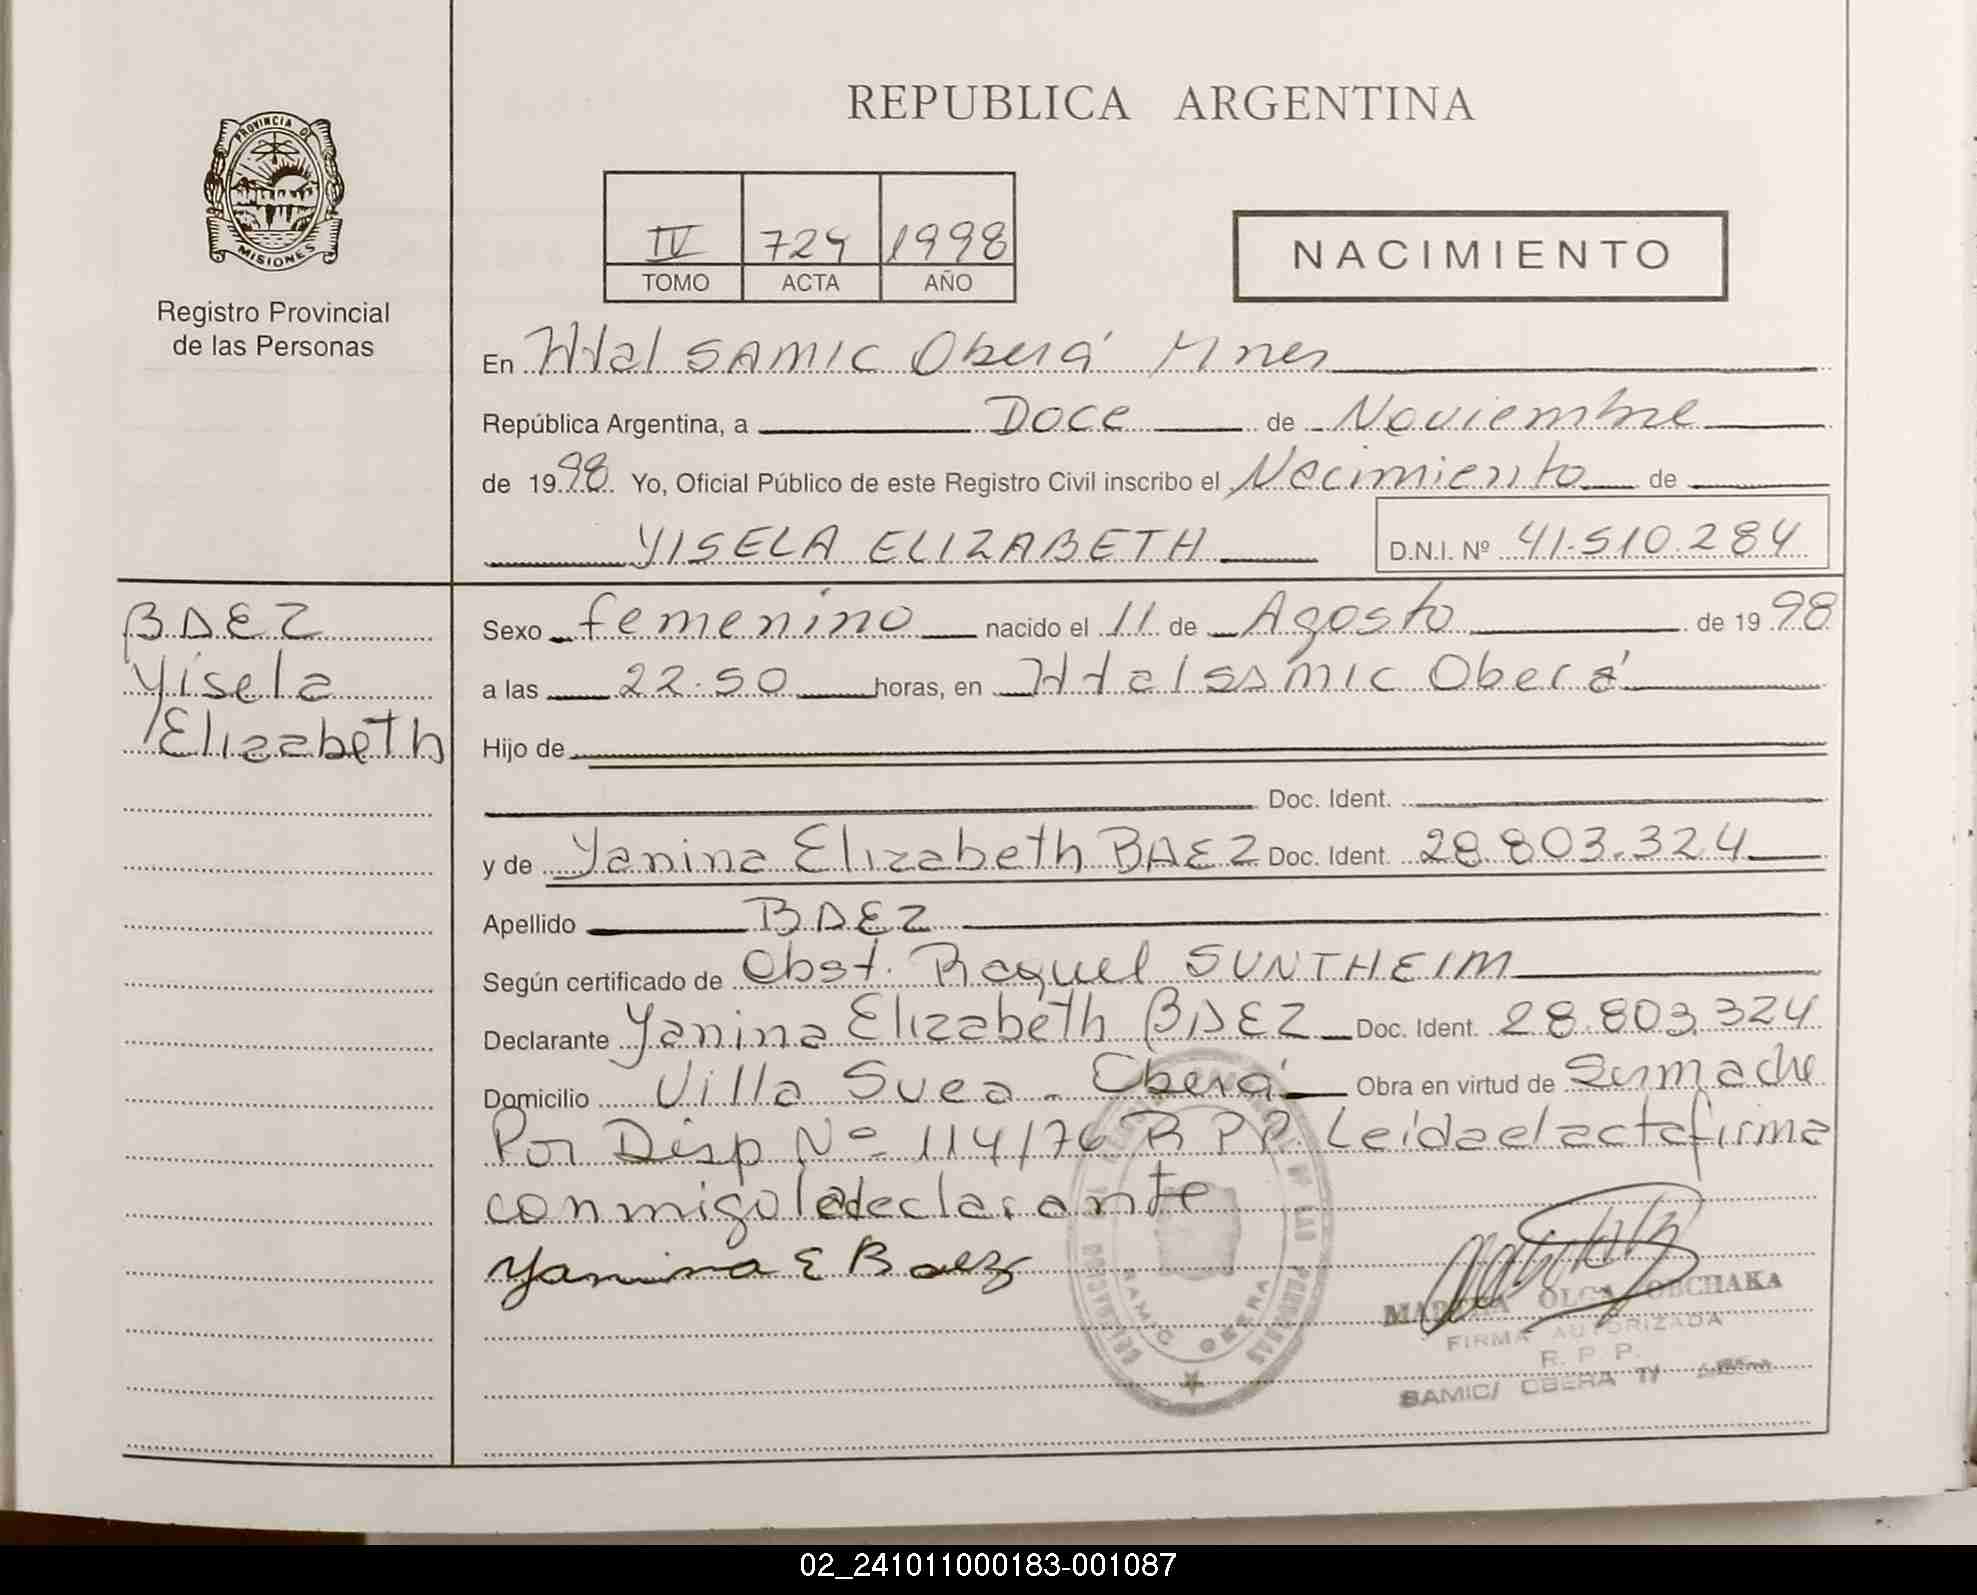 REPUBLICA ARGENTINA
PROVINCIA DE
MISIONES
Registro Provincial
de las Personas
IV 724 1998
TOMO ACTA AÑO
NACIMIENTO
En Htal SAMIC Oberá Mnes
República Argentina, a Doce de Noviembre
de 1998. Yo, Oficial Público de este Registro Civil inscribo el Nacimiento de
YISELA ELIZABETH D.N.I. Nº 41.510.284
BAEZ
Yisela
Elizabeth
Sexo femenino nacido el 11 de Agosto de 1998
a las 22.50 horas, en Htal SAMIC Oberá
Hijo de
Doc. Ident.
y de Yanina Elizabeth BAEZ Doc. Ident. 28.803.324
Apellido BAEZ
Según certificado de Obst. Raquel SUNTHEIM
Declarante Yanina Elizabeth BAEZ Doc. Ident. 28.803.324
Domicilio Villa Svea - Oberá Obra en virtud de Sermadre
Por Disp Nº 114/76 R P P. Leida el acta firma
conmigo la declarante
Yanina E Baez
MARTHA OLGA OBCHAKA
FIRMA AUTORIZADA
R. P. P.
SAMIC/ OBERA
DE LAS PERSONAS
DELEGACION
SAMIC OBERA
02_241011000183-001087